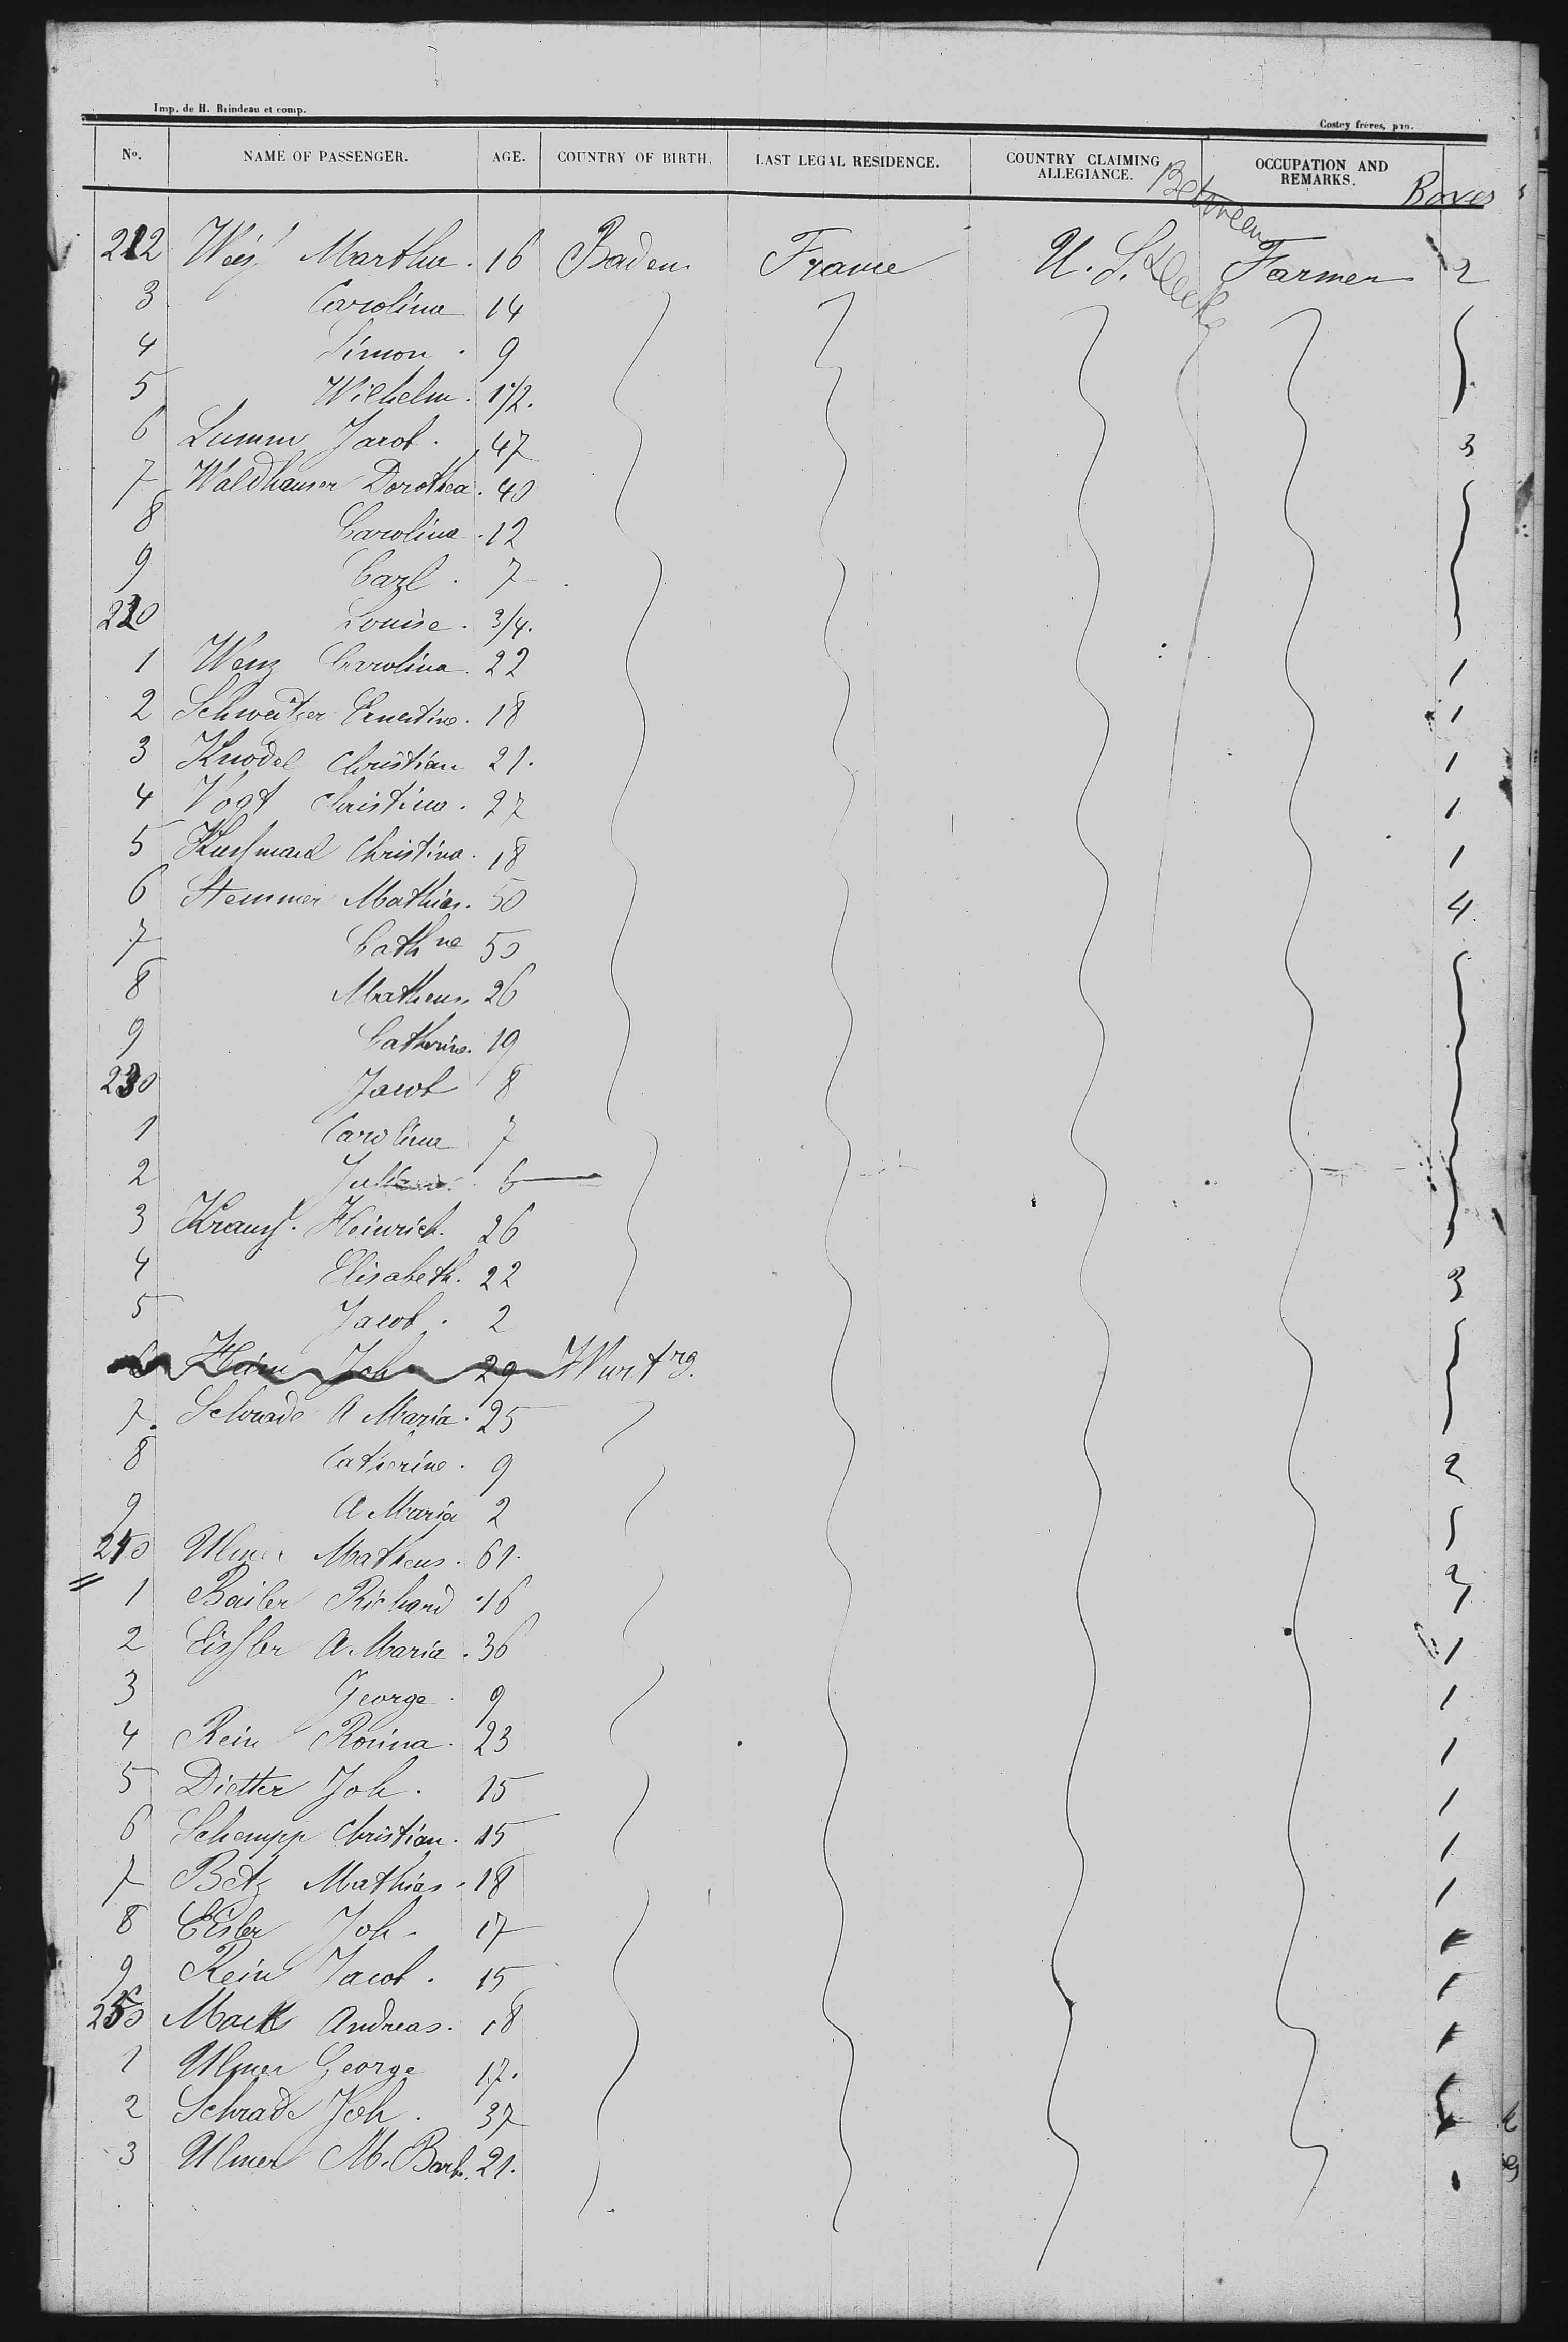 Imp. de H. Brindeau et comp.
Costey frères, pin.
No. NAME OF PASSENGER. AGE. COUNTRY OF BIRTH. LAST LEGAL RESIDENCE. COUNTRY CLAIMING ALLEGIANCE. OCCUPATION AND REMARKS. Boxes
Between Decks
212 Martha. 16 Baden France U. S. Farmer 2
3 Carolina 14
4 Simon. 9
5 Wilhelm. 1 1/2.
6 Lumm Jacob. 47 3
7 Waldhauser Dorothea. 40
8 Carolina. 12
9 Carl. 7
220 Louise. 3/4.
1 Wenz Carolina. 22 1
2 Schweitzer Ernestine. 18 1
3 Knodel Christian 21. 1
4 Vogt Christina. 27 1
5 Christina. 18 1
6 Stemmer Mathias. 50 4.
7 Cathne 50
8 Matheus 26
9 Catherine. 19
230 Jacob 8
1 Carolina 7
2 6
3 Krauss. Heinrich. 26
4 Elisabeth. 22 3
5 Jacob. 2
6 Joh 29 Wurtrg.
7. Schrade A Maria. 25
8 Catherine. 9 2
9 A Maria 2
240 Ulmer Matheus. 61.
1 Richard 16
2 Eissler A Maria. 36 1
3 George. 9 1
4 Rein Rosina. 23 1
5 Dietter Joh. 15 1
6 Schempp Christian. 15 1
7 Betz Mathias. 18 1
8 Eisler Joh. 17 1
9 Rein Jacob. 15 1
250 Mack Andreas. 18 1
1 Ulmer George 17.
2 Schrade Joh. 37
3 Ulmer M. Barb. 21. 1